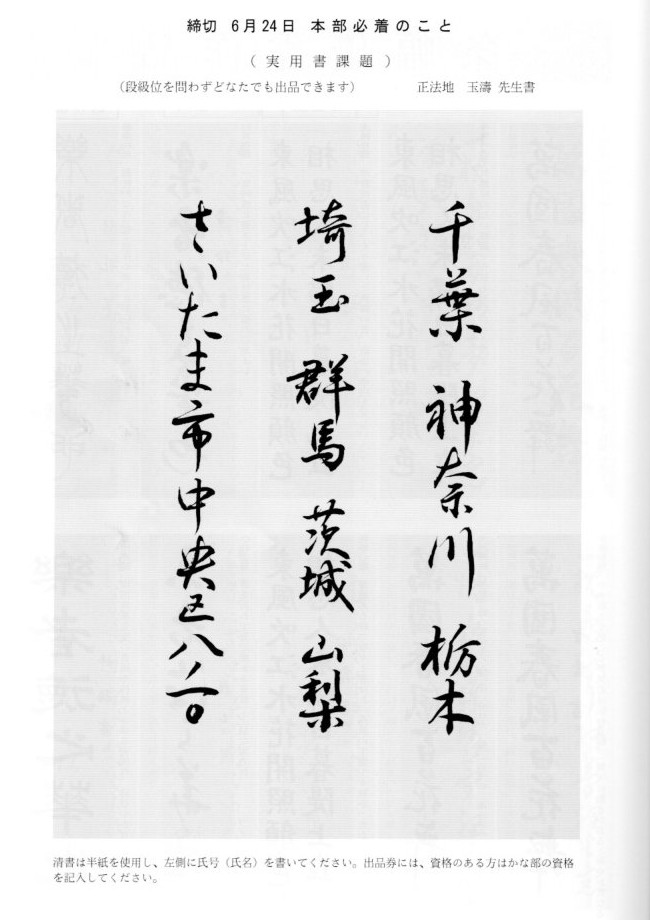 締切 6月24日 本部必着のこと
(実用書課題)
(段級位を問わずどなたでも出品できます) 正法地 玉濤 先生書
千葉 神奈川 栃木
埼玉 群馬 茨城 山梨
さいたま市中央区八ノ一〇
清書は半紙を使用し、左側に氏号(氏名)を書いてください。出品券には、資格のある方はかな部の資格
を記入してください。